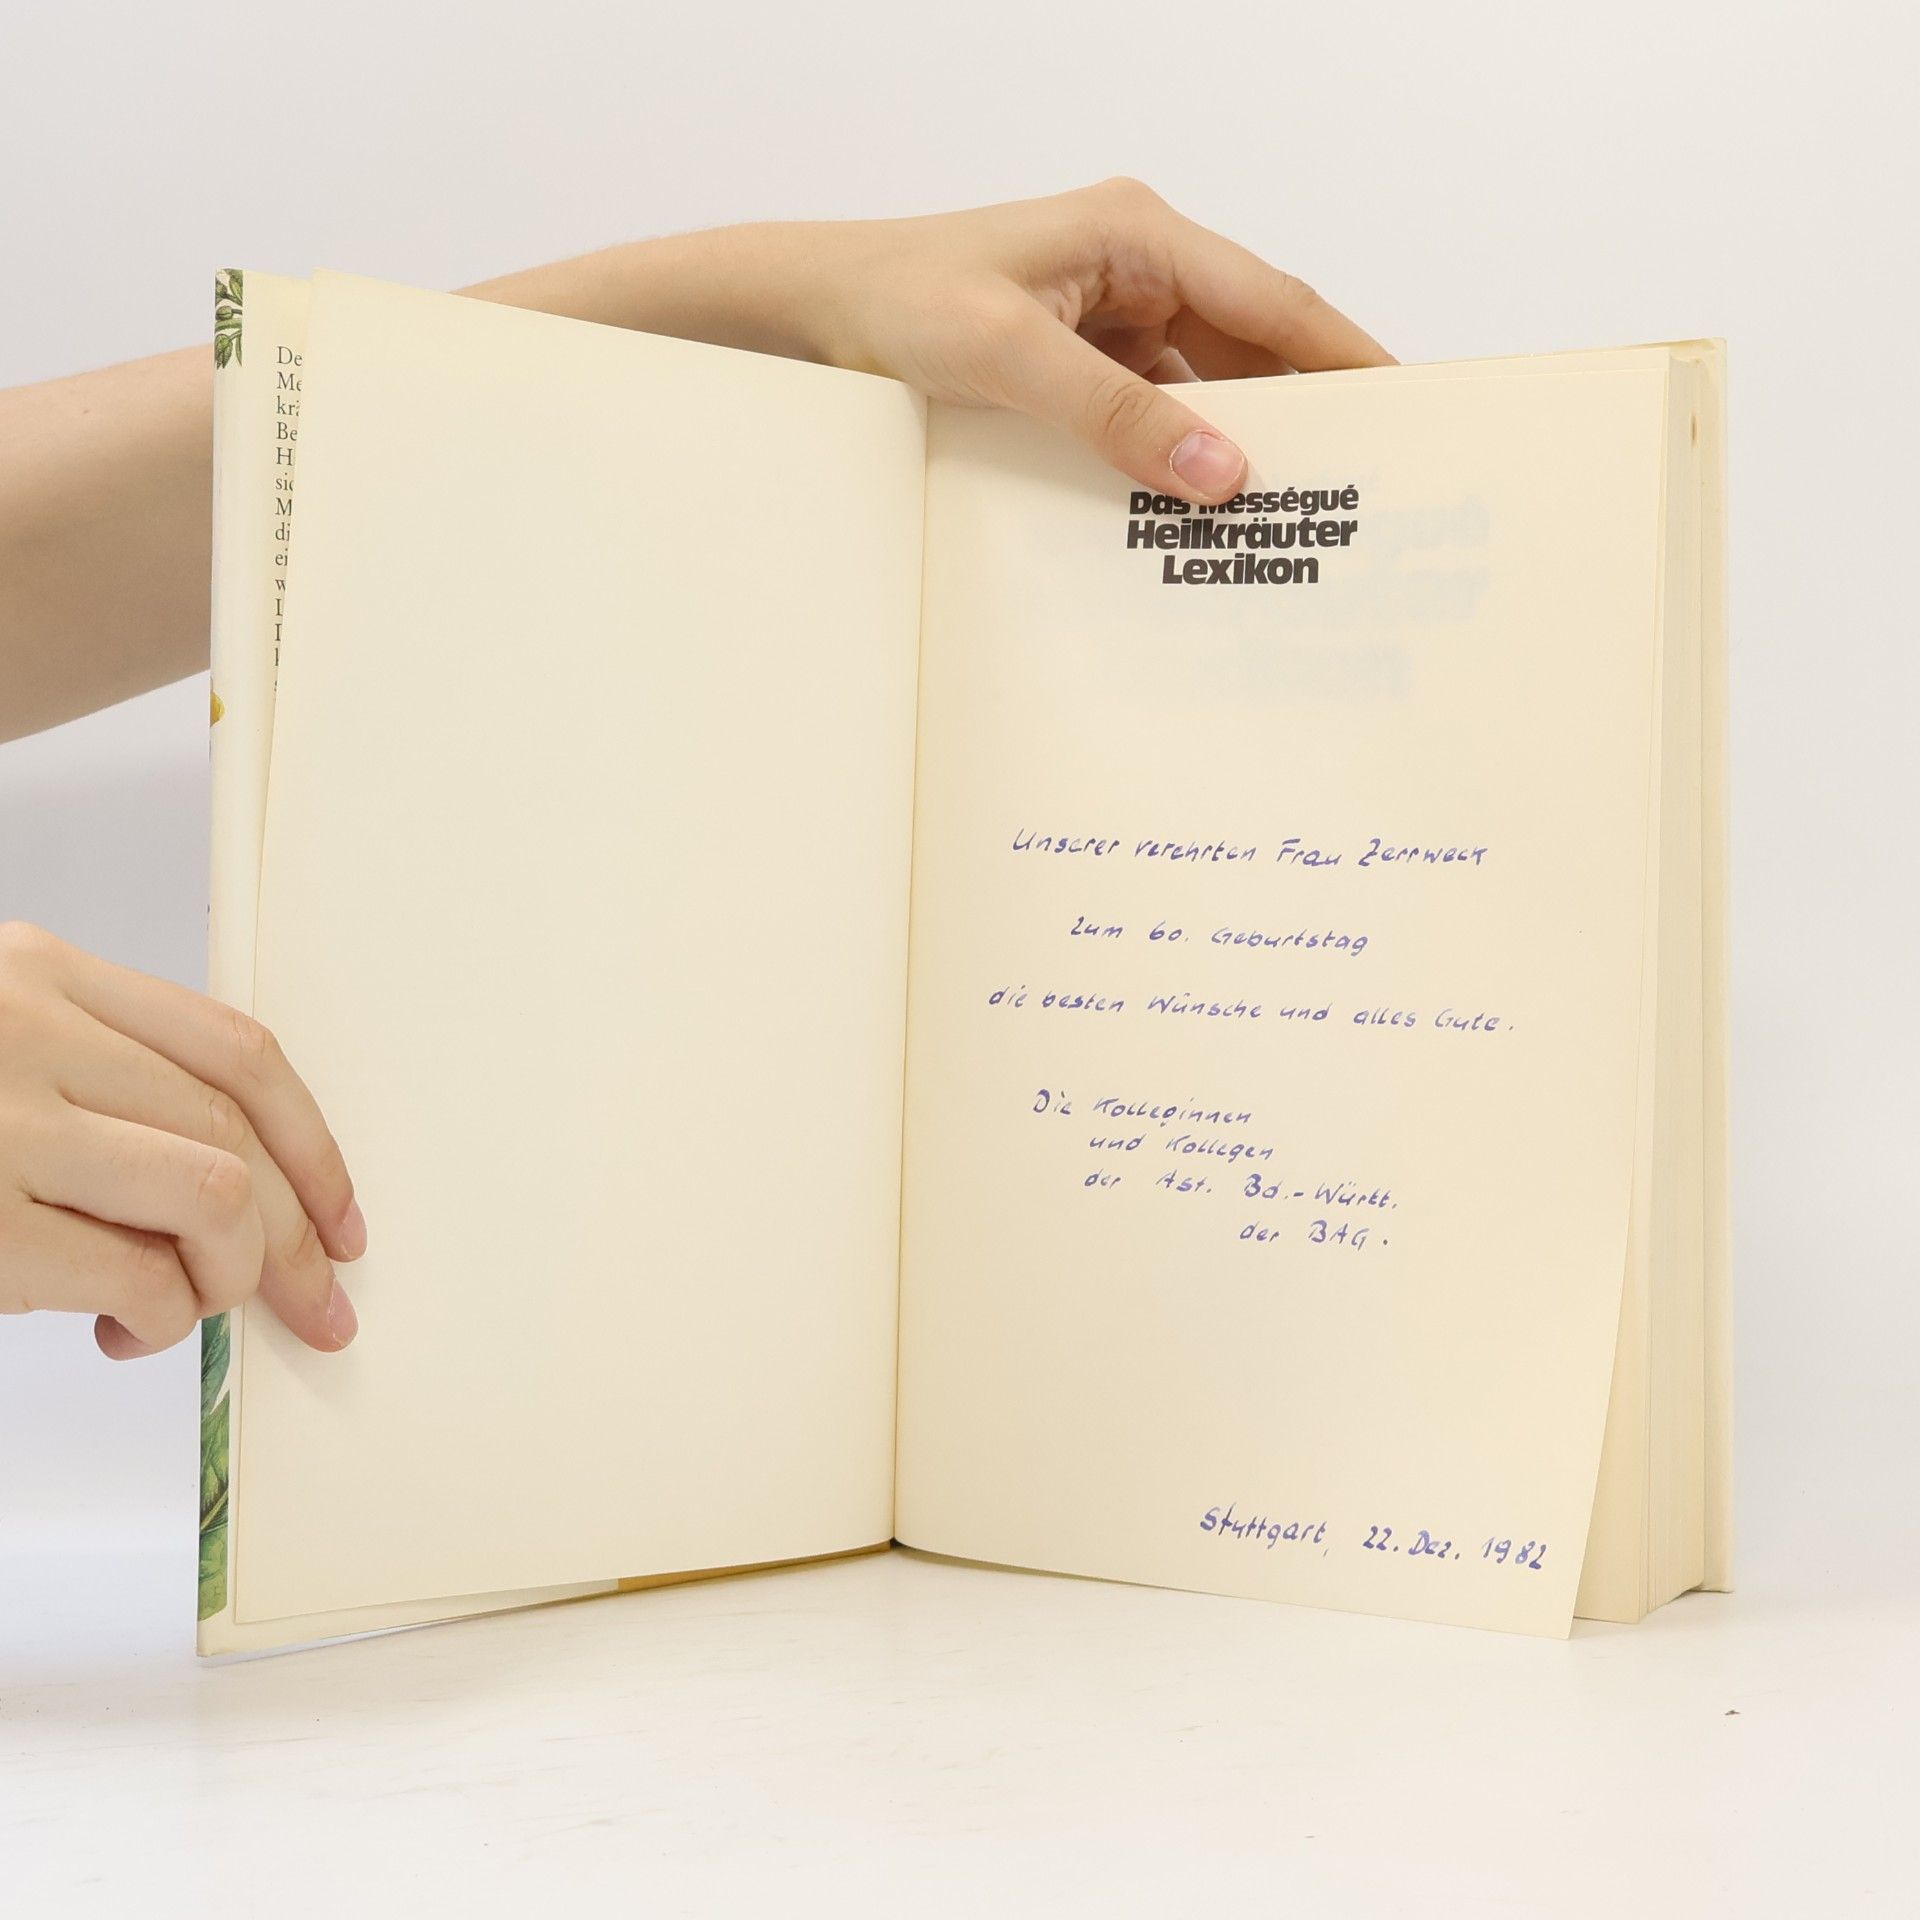 De
Me
krä
Be
H
sic
M
di
ei
w
L
D
k
s
Das Mességué
Heilkräuter
Lexikon
Unserer verehrten Frau Zerrweck
zum 60. Geburtstag
die besten Wünsche und alles Gute.
Die Kolleginnen
und Kollegen
der Ast. Bd.-Württ.
der BAG.
Stuttgart, 22. Dez. 1982